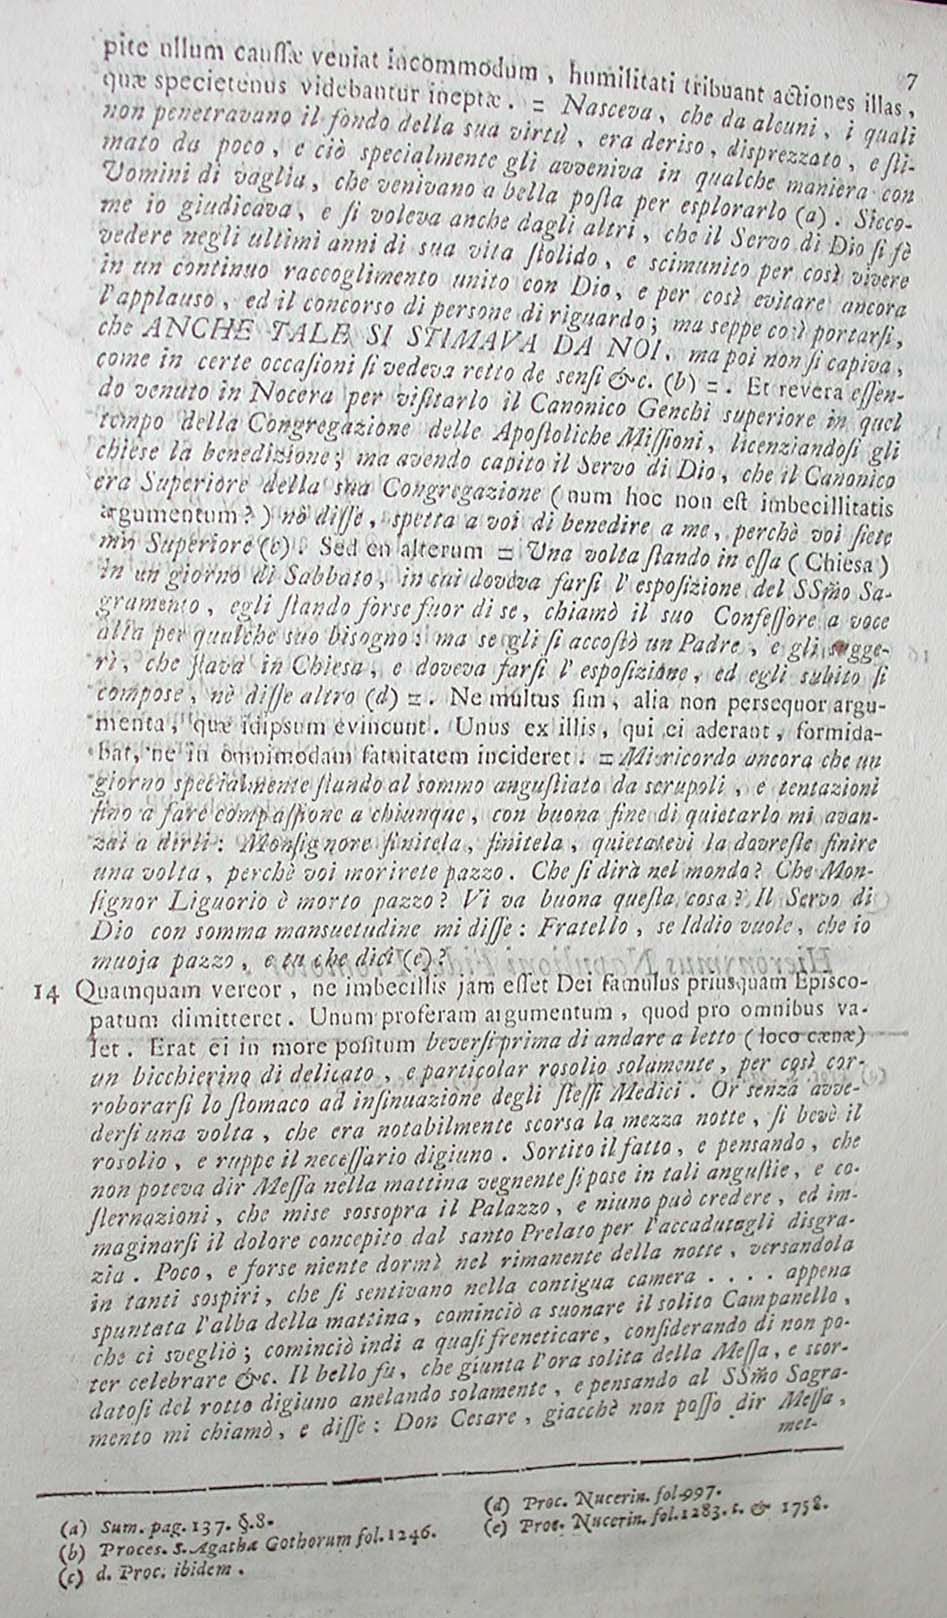 7
pite ullum caussæ veniat incommodum, humilitati tribuant actiones illas,
quæ specietenus videbantur ineptæ. = Nasceva, che da alcuni, i quali
non penetravano il fondo della sua virtù, era deriso, disprezzato, e sti-
mato da poco, e ciò specialmente gli avveniva in qualche maniera con
Uomini di vaglia, che venivano a bella posta per esplorarlo (a). Sicco-
me io giudicava, e si voleva anche dagli altri, che il Servo di Dio si fè
vedere negli ultimi anni di sua vita stolido, e scimunito per così vivere
in un continuo raccoglimento unito con Dio, e per così evitare ancora
l'applauso, ed il concorso di persone di riguardo; ma seppe così portarsi,
che ANCHE TALE SI STIMAVA DA NOI, ma poi non si capiva,
come in certe occasioni si vedeva retto de sensi &c. (b) =. Et revera essen-
do venuto in Nocera per visitarlo il Canonico Genchi superiore in quel
tempo della Congregazione delle Apostoliche Missioni, licenziandosi gli
chiese la benedizione; ma avendo capito il Servo di Dio, che il Canonico
era Superiore della sua Congregazione (num hoc non est imbecillitatis
argumentum?) nò disse, spetta a voi di benedire a me, perchè voi siete
mio Superiore (c). Sed en alterum = Una volta stando in essa (Chiesa)
in un giorno di Sabbato, in cui doveva farsi l'esposizione del SSm̃o Sa-
gramento, egli stando forse fuor di se, chiamò il suo Confessore a voce
alta per qualche suo bisogno: ma se gli si accostò un Padre, e gli sugge-
rì, che stava in Chiesa, e doveva farsi l'esposizione, ed egli subito si
compose, nè disse altro (d) =. Ne multus sim, alia non persequor argu-
menta, quæ idipsum evincunt. Unus ex illis, qui ei aderant, formida-
bat, ne in omnimodam fatuitatem incideret. = Mi ricordo ancora che un
giorno specialmente stando al sommo angustiato da scrupoli, e tentazioni
fino a fare compassione a chiunque, con buona fine di quietarlo mi avan-
zai a dirli: Monsignore finitela, finitela, quietatevi la dovreste finire
una volta, perchè voi morirete pazzo. Che si dirà nel mondo? Che Mon-
signor Liguorio è morto pazzo? Vi va buona questa cosa? Il Servo di
Dio con somma mansuetudine mi disse: Fratello, se Iddio vuole, che io
muoja pazzo, e tu che dici (e)?
14 Quamquam vereor, ne imbecillis jam esset Dei famulus priusquam Episco-
patum dimitteret. Unum proferam argumentum, quod pro omnibus va-
let. Erat ei in more positum beversi prima di andare a letto (loco cænæ)
un bicchierino di delicato, e particolar rosolio solamente, per così cor-
roborarsi lo stomaco ad insinuazione degli stessi Medici. Or senza avve-
dersi una volta, che era notabilmente scorsa la mezza notte, si bevè il
rosolio, e ruppe il necessario digiuno. Sortito il fatto, e pensando, che
non poteva dir Messa nella mattina vegnente si pose in tali angustie, e co-
sternazioni, che mise sossopra il Palazzo, e niuno può credere, ed im-
maginarsi il dolore concepito dal santo Prelato per l'accadutagli disgra-
zia. Poco, e forse niente dormì nel rimanente della notte, versandola
in tanti sospiri, che si sentivano nella contigua camera . . . . appena
spuntata l'alba della mattina, cominciò a suonare il solito Campanello,
che ci svegliò; cominciò indi a quasi freneticare, considerando di non po-
ter celebrare &c. Il bello fu, che giunta l'ora solita della Messa, e scor-
datosi del rotto digiuno anelando solamente, e pensando al SSm̃o Sagra-
mento mi chiamò, e disse: Don Cesare, giacchè non posso dir Messa,
met-
(a) Sum. pag. 137. §. 8.
(b) Proces. S. Agathæ Gothorum fol. 1246.
(c) d. Proc. ibidem.
(d) Proc. Nucerin. fol. 997.
(e) Proc. Nucerin. fol. 1283. t. & 1758.